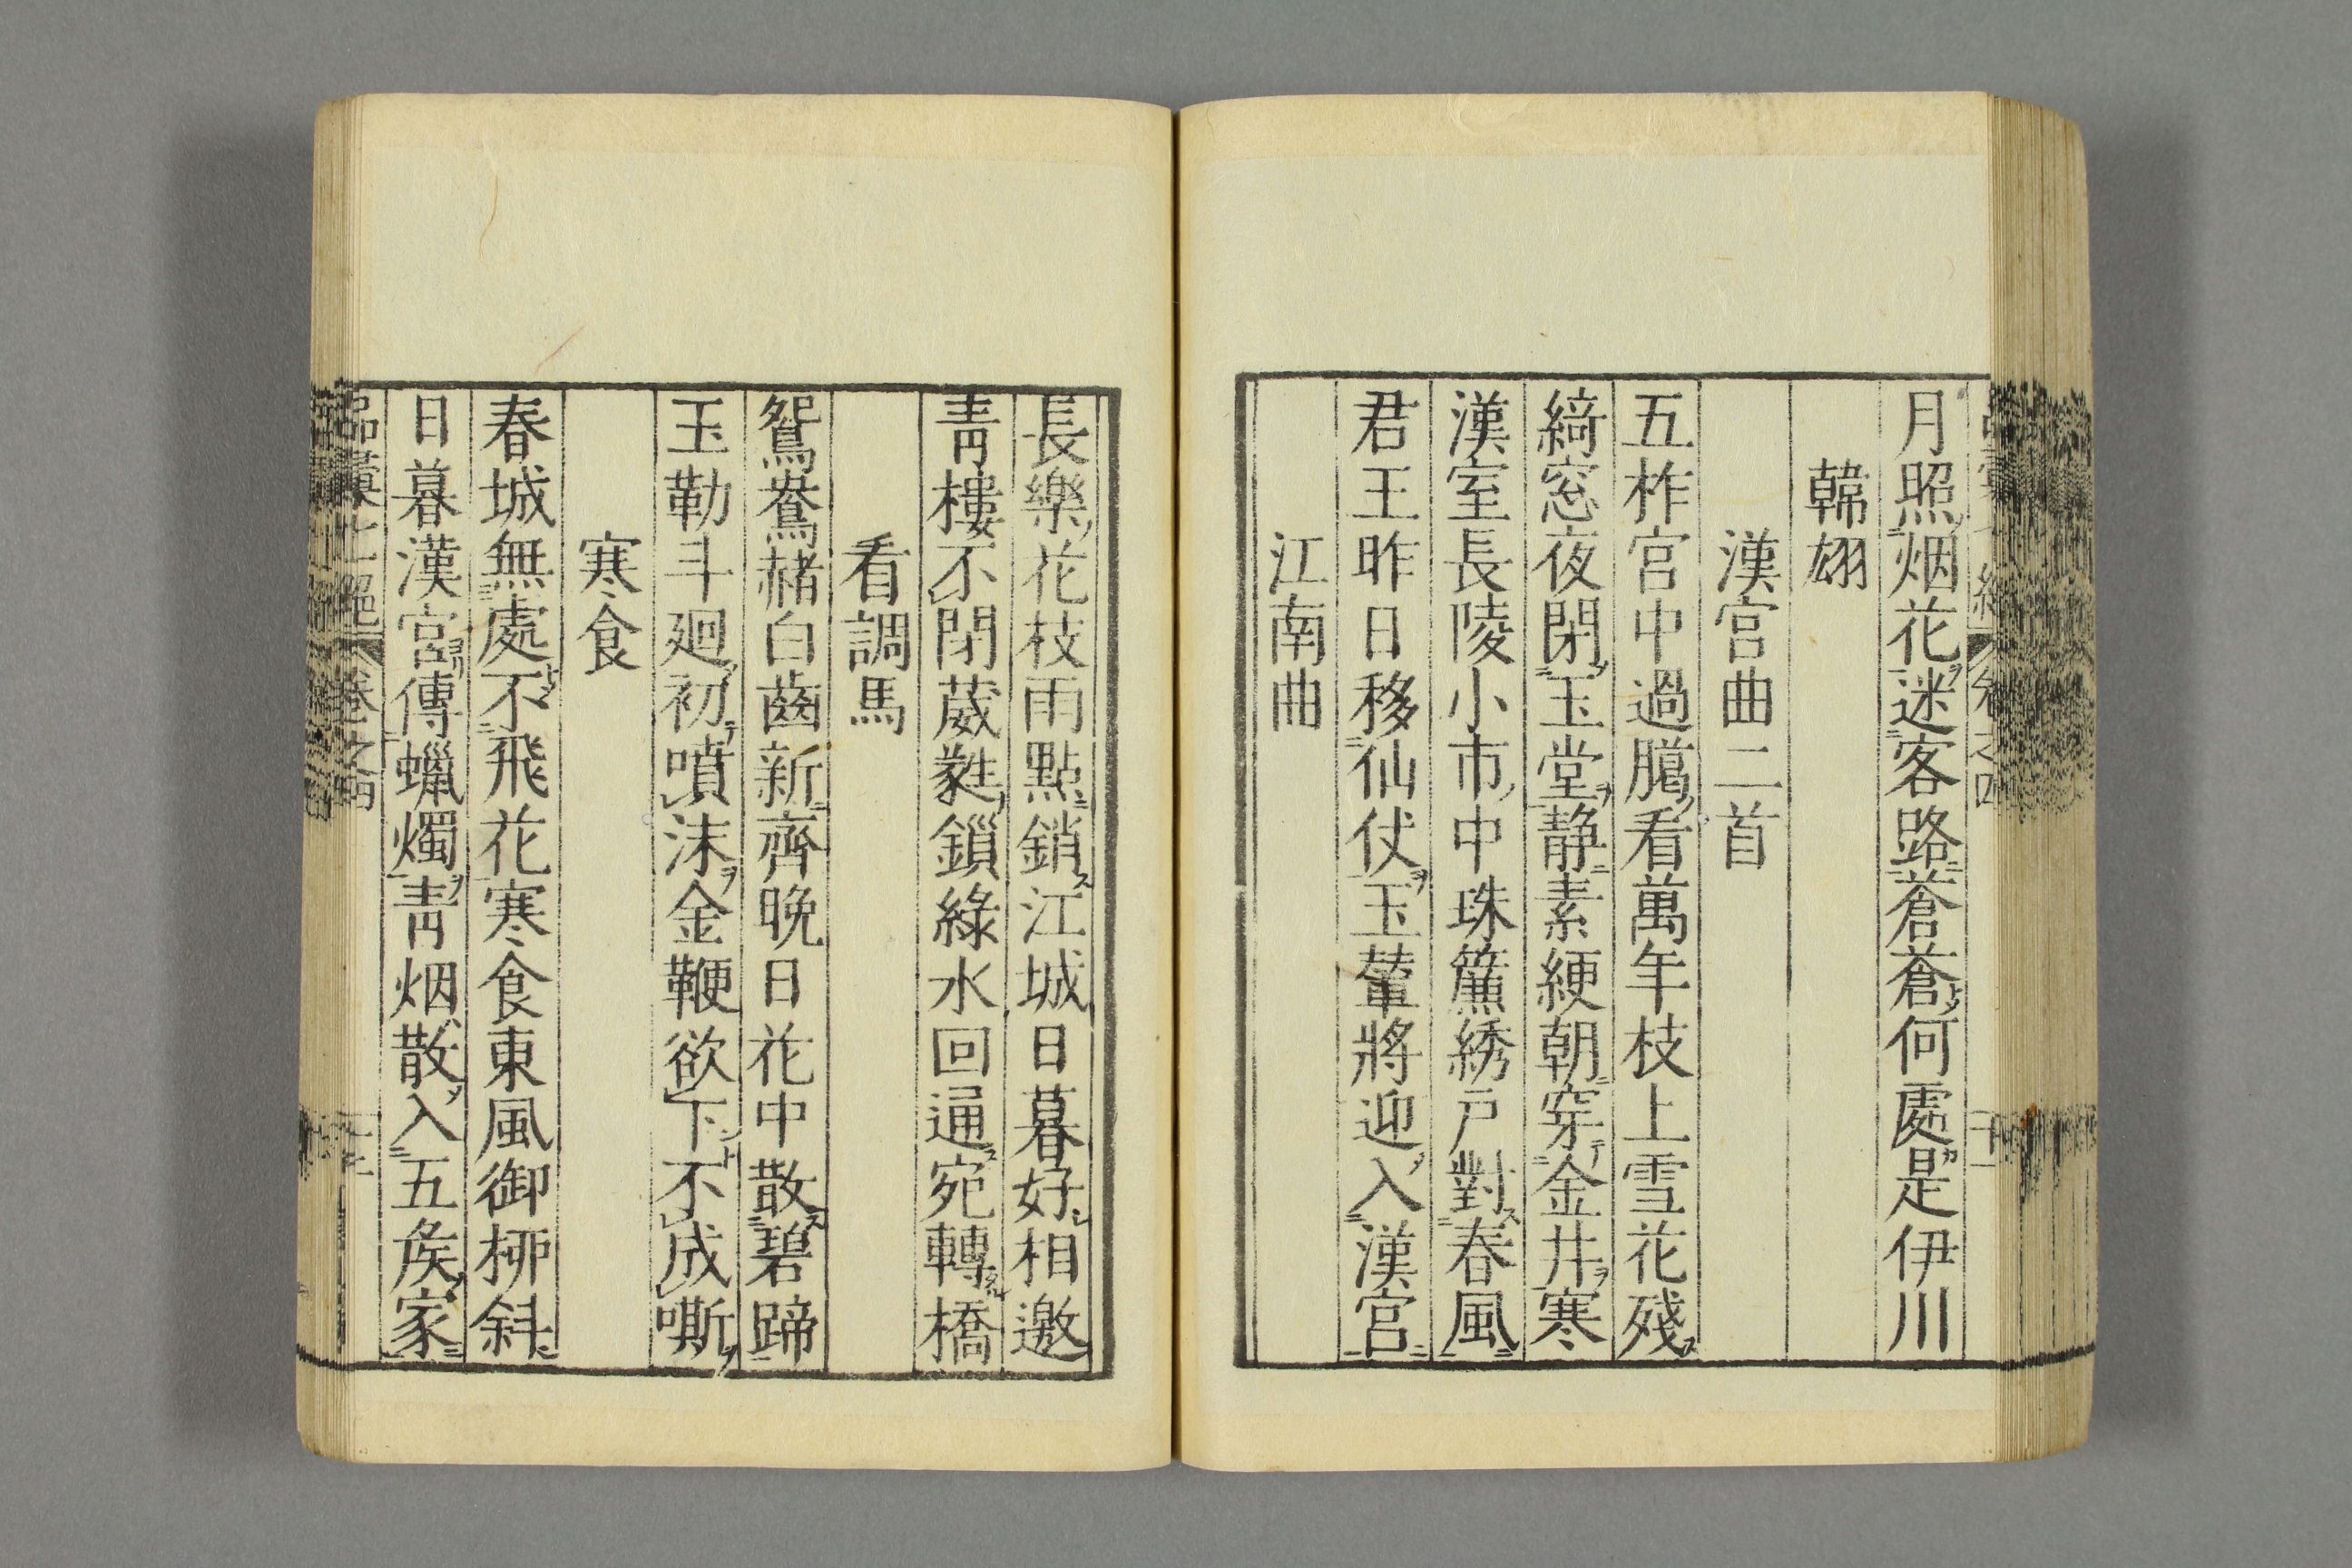 月照烟花迷客路蒼蒼何處是伊川
韓翃
漢宮曲二首
五柞宮中過臈看萬年枝上雪花殘
綺窓夜閉玉堂静素綆朝穿金井寒
漢室長陵小市中珠簾綉戸對春風
君王昨日移仙仗玉輦將迎入漢宮
江南曲
長樂花枝雨點銷江城日暮好相邀
青樓不閉葳蕤鎻綠水回通宛轉橋
看調馬
鴛鴦赭白齒新齊晚日花中散碧蹄
玉勒斗廻初噴沫金鞭欲下不成嘶
寒食
春城無處不飛花寒食東風御柳斜
日暮漢宮傳蠟燭青烟散入五矦家